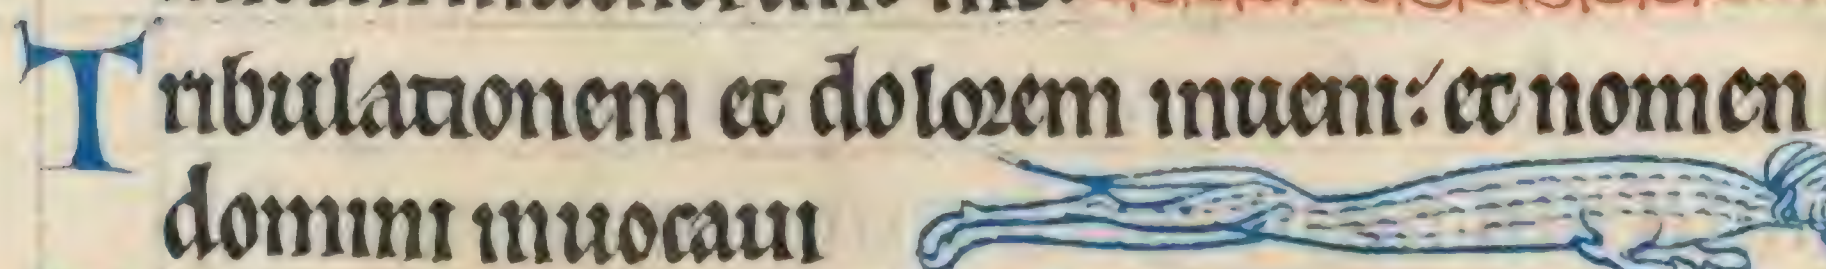 Tribulationem et dolorem inueni: et nomen
domini inuocaui